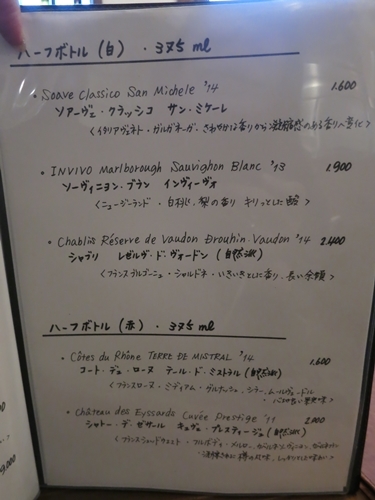 ハーフボトル (白) ・375ml
・Soave Classico San Michele '14 1.600
ソアーヴェ・クラッシコ サン・ミケーレ
<イタリアヴェネト・ガルガネーガ・さわやかな香りから 感のある香りへ変化>
・INVIVO Marlborough Sauvignon Blanc '13 1.900
ソーヴィニヨン・ブラン インヴィーヴォ
<ニュージーランド・白桃、梨の香り キリッとした酸>
・Chablis Réserve de Vaudon Drouhin Vaudon '14 2.400
シャブリ レゼルヴ・ド・ヴォードン (自然派)
<フランスブルゴーニュ・シャルドネ・いきいきとした香り、長い余韻>
ハーフボトル (赤) ・375ml
・Côtes du Rhône TERRE DE MISTRAL '14 1.600
コート・デュ・ローヌ テール・ド・ミストラル (自然派)
<フランスローヌ・ミディアム・グルナーシュ、シラー、ムールヴェードル
・Château des Eyssards Cuvée Prestige '11 2.000
シャトー・デ・ゼサール キュヴェ・プレスティージュ (自然派)
<フランスシュッドウェスト・フルボディ・メルロー、
9,000